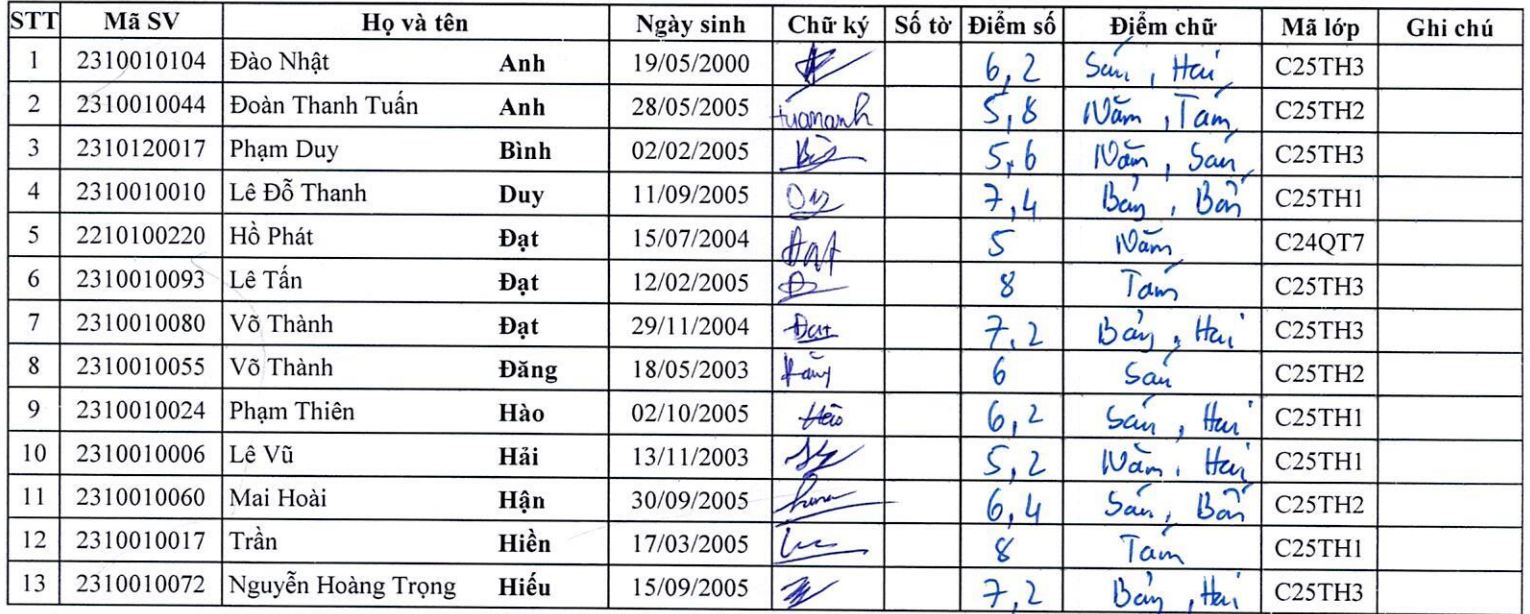 STT Mã SV Họ và tên Ngày sinh Chữ ký Số tờ Điểm số Điểm chữ Mã lớp Ghi chú
1 2310010104 Đào Nhật Anh 19/05/2000 6,2 Sáu, Hai C25TH3
2 2310010044 Đoàn Thanh Tuấn Anh 28/05/2005 tuananh 5,8 Năm, Tám C25TH2
3 2310120017 Phạm Duy Bình 02/02/2005 5,6 Năm, Sáu C25TH3
4 2310010010 Lê Đỗ Thanh Duy 11/09/2005 Duy 7,4 Bảy, Bốn C25TH1
5 2210100220 Hồ Phát Đạt 15/07/2004 Đạt 5 Năm C24QT7
6 2310010093 Lê Tấn Đạt 12/02/2005 8 Tám C25TH3
7 2310010080 Võ Thành Đạt 29/11/2004 Đạt 7,2 Bảy, Hai C25TH3
8 2310010055 Võ Thành Đăng 18/05/2003 Đăng 6 Sáu C25TH2
9 2310010024 Phạm Thiên Hào 02/10/2005 Hào 6,2 Sáu, Hai C25TH1
10 2310010006 Lê Vũ Hải 13/11/2003 5,2 Năm, Hai C25TH1
11 2310010060 Mai Hoài Hận 30/09/2005 6,4 Sáu, Bốn C25TH2
12 2310010017 Trần Hiền 17/03/2005 8 Tám C25TH1
13 2310010072 Nguyễn Hoàng Trọng Hiếu 15/09/2005 7,2 Bảy, Hai C25TH3